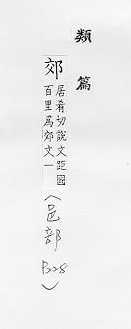 類篇
郊
居肴切說文距國
百里爲郊文一
(邑部
)